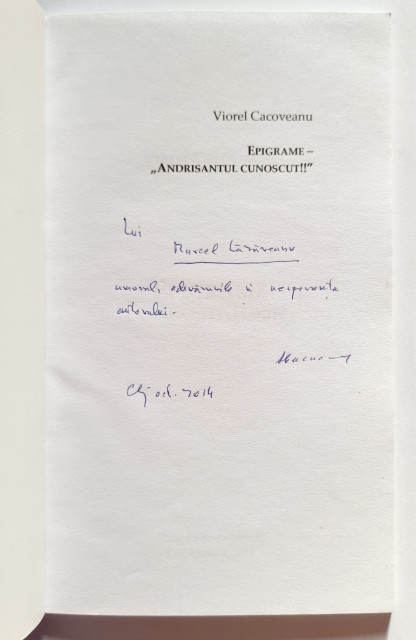 Viorel Cacoveanu
EPIGRAME –
„ANDRISANTUL CUNOSCUT!!”
Lui
Marcel Lăzăreanu
umorul, adevărurile și
autorului.
Cluj oct. 2014